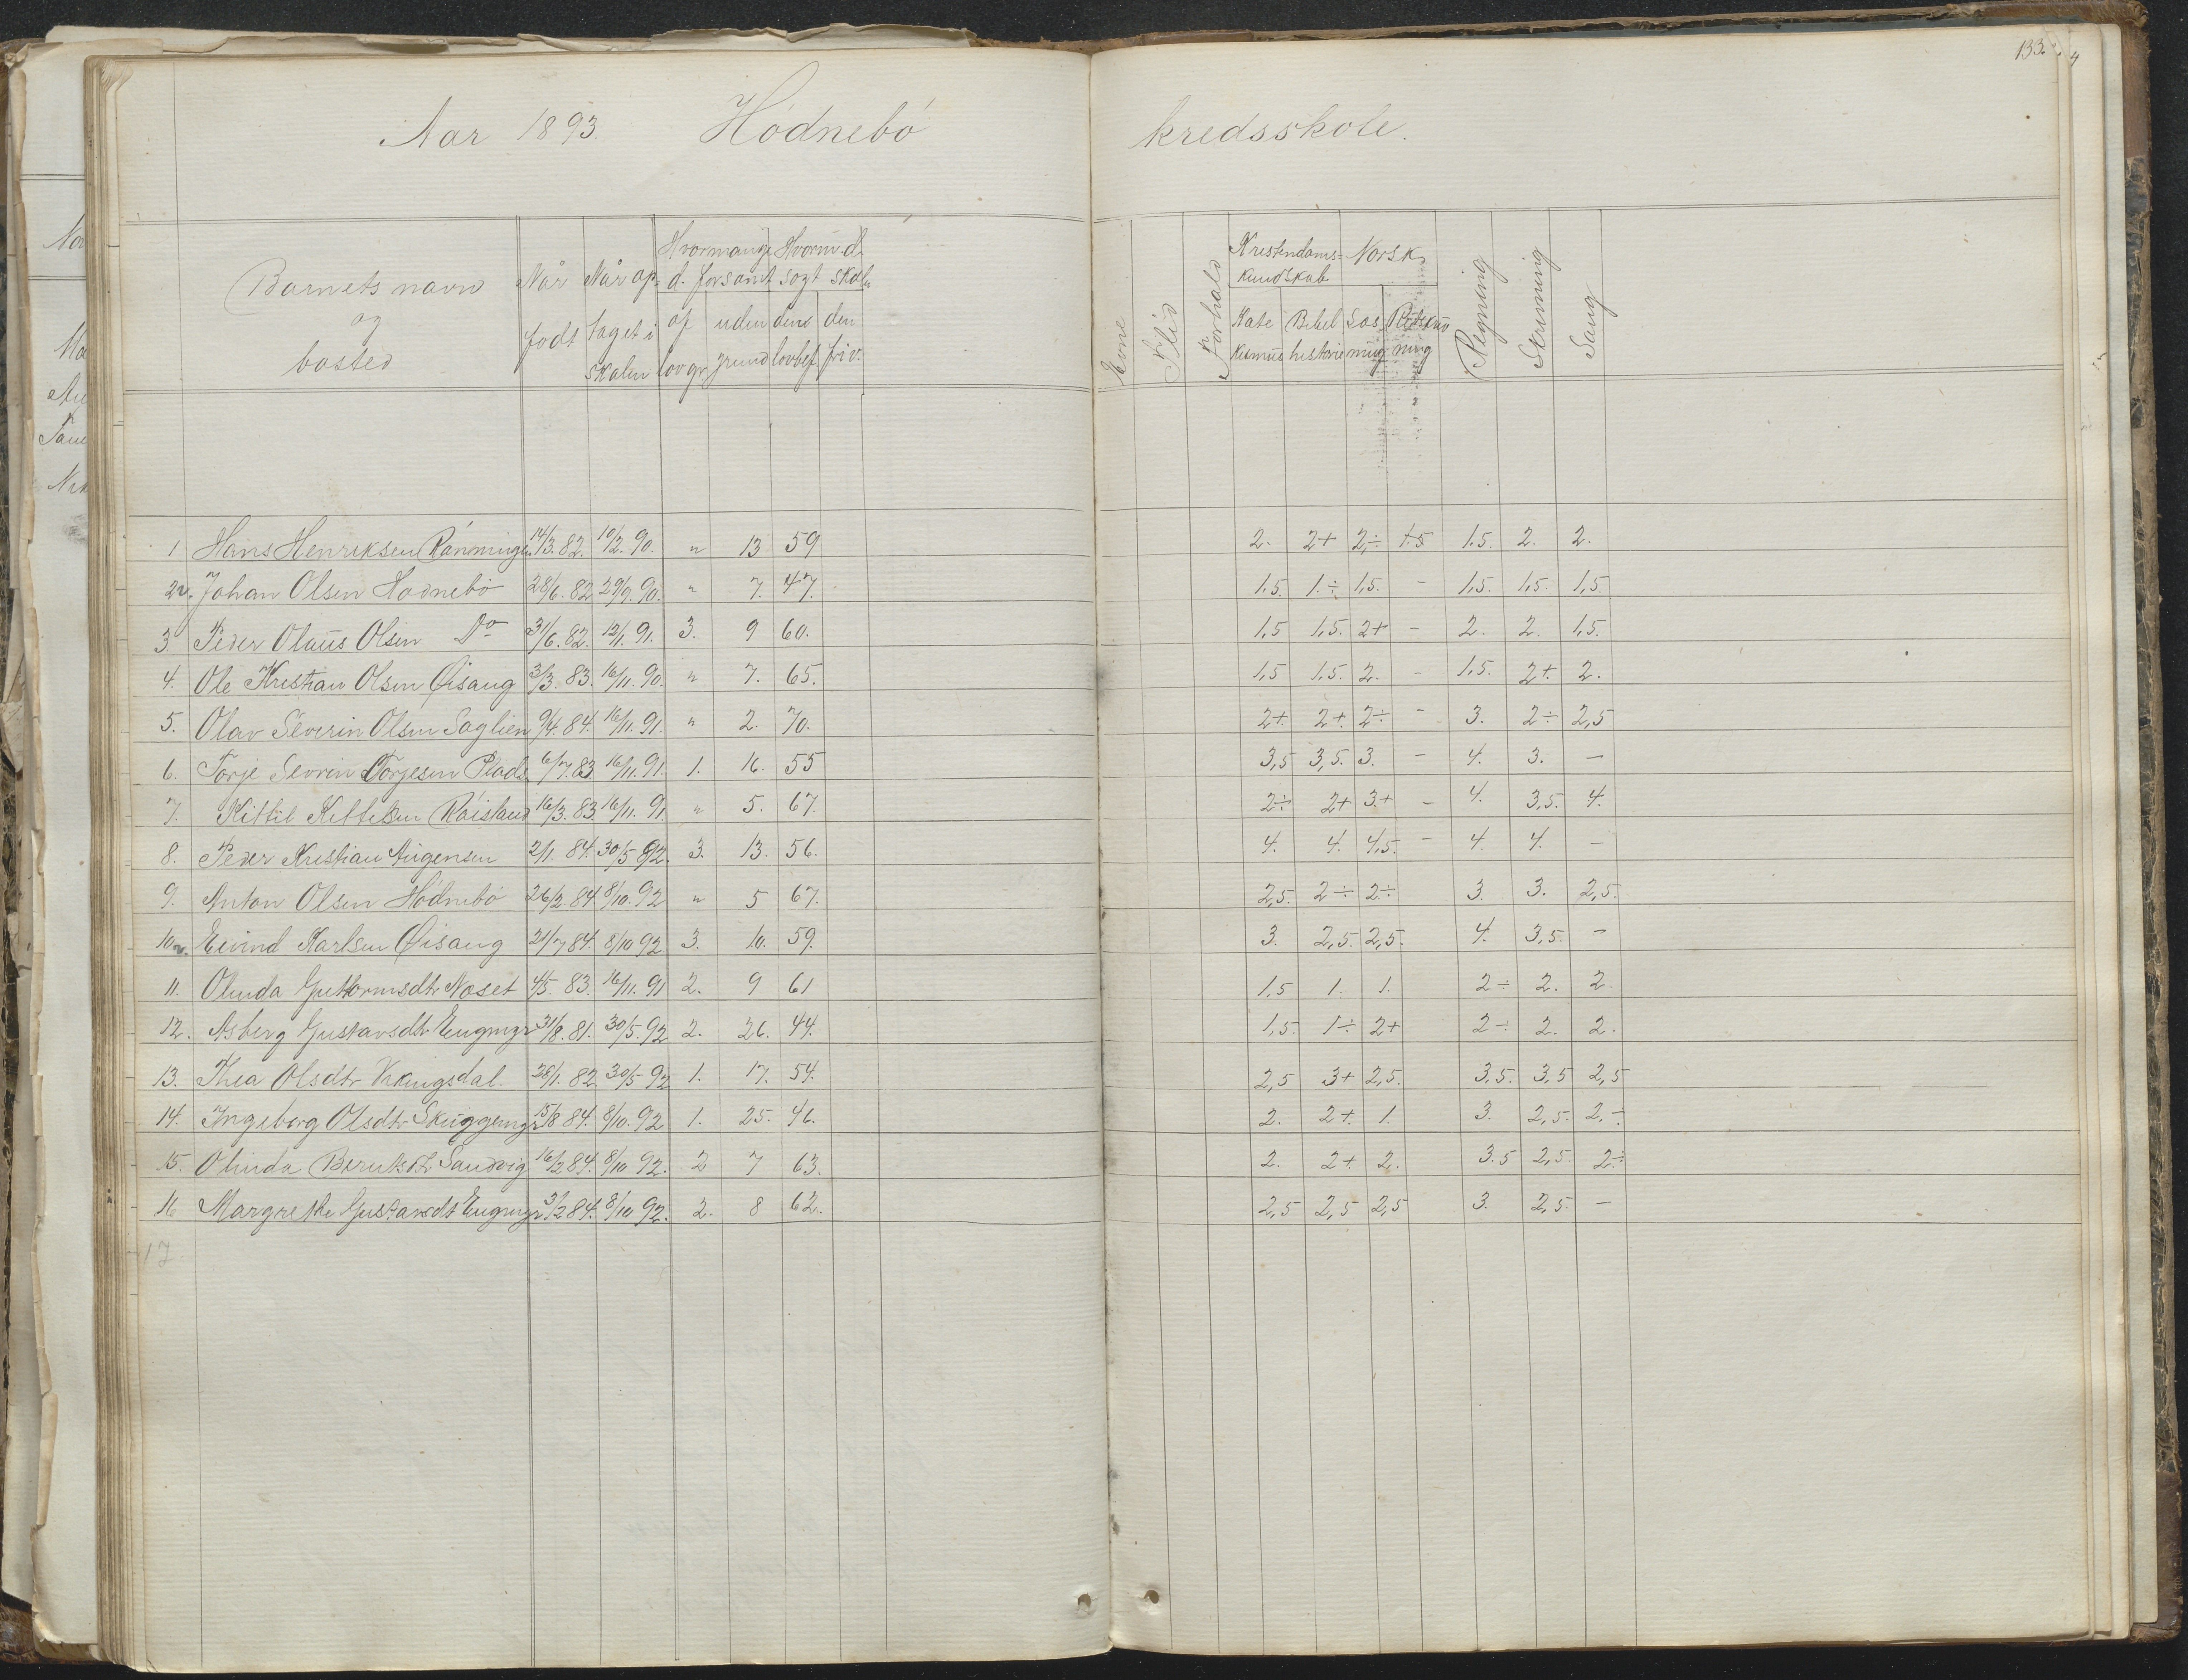 133.
Aar 1893. Hódnebó kredsskole.
Barnets navn og bosted | Når født | Når optaget i skolen | Hvormange d. forsømt | Hvorm. d. søgt skolen
af lovgr. | uden grund | den lovbef. | den friv.
Evne | Flid | Forhold | Kristendomskundskab | Norsk | Regning | Skrivning | Sang
Katekismus | Bibelhistorie | Læsning
1 Hans Henriksen Rønningen 14/3. 82. 10/2. 90. " 13 59 2. 2+ 2÷ 1.5 1.5. 2. 2.
2. Johan Olsen Hódnebó 28/6. 82 29/9. 90. " 7. 47. 1.5. 1.÷ 1,5. - 1,5. 1,5. 1,5.
3 Peder Olaus Olsen Do 31/6. 82. 12/1. 91. 3. 9 60. 1,5 1,5. 2+ - 2. 2. 1,5.
4. Ole Kristian Olsen Øisang 3/3. 83. 16/11. 90. " 7. 65. 1,5 1.5. 2. - 1,5. 2+. 2.
5. Olav Severin Olsen Saglien 9/4. 84. 16/11. 91. " 2. 70. 2+. 2+. 2÷ - 3. 2÷ 2,5
6. Torje Sevrin Torjesen Plads 6/7. 83. 16/11. 91. 1. 16. 55 3,5 3,5. 3. - 4. 3. -
7. Kittil Kittilsen Róisland 16/3. 83. 16/11. 91 " 5. 67. 2÷ 2+ 3+ - 4. 3,5. 4.
8. Peder Kristian Augensen 2/1. 84. 30/5 92. 3. 13. 56. 4. 4. 4,5. - 4. 4. -
9. Anton Olsen Hódnebó 26/2. 84. 8/10. 92 " 5 67. 2,5. 2÷ 2÷ 3. 3. 2,5.
10. Eivind Karlsen Øisang 21/7 84. 8/10 92 3. 10. 59. 3. 2,5. 2,5. 4. 3,5. -
11. Olinda Guttormsdtr Næset 4/5. 83. 16/11. 91 2. 9 61 1,5 1. 1. 2÷ 2. 2.
12. Asberg Gustavsdtr. Engmyr 31/8. 81. 30/5. 92 2. 26. 44. 1,5. 1÷ 2+ 2÷ 2. 2.
13. Thea Olsdtr Vikingsdal. 28/1. 82 30/5 92 1. 17. 54. 2,5 3+ 2,5. 3,5. 3,5 2,5
14. Ingeborg Olsdtr Skuggemyr 15/8 84. 8/10. 92 1. 25. 46. 2. 2+. 1. 3. 2,5. 2.÷
15. Olinda Berntsdt Sandvig 16/2 84. 8/10 92. 2 7 63. 2. 2+. 2. 3.5 2,5. 2÷
16 Margrethe Gustavsdt Engmyr 3/2 84. 8/10 92. 2. 8 62. 2,5 2,5 2,5 3. 2,5. -
17